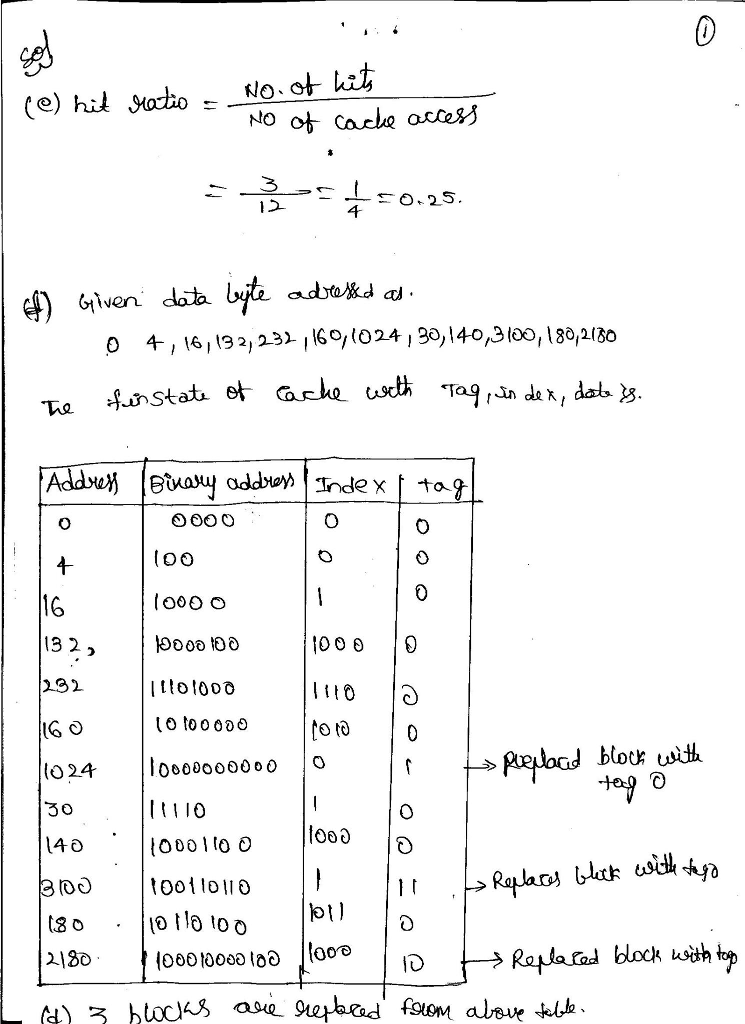 ①
sol
(e) hit ratio = No. of hits
No of cache access
= 3/12 = 1/4 = 0.25.
f) Given data byte adressed as.
0 4, 16, 132, 232, 160, 1024, 30, 140, 3100, 180, 2180
The state of cache with Tag, index, data is.
Address Binary address Index tag
0 0000 0 0
4 100 0 0
16 10000 1 0
132, 10000100 1000 0
232 11101000 1110 0
160 10100000 1010 0
1024 10000000000 0 1 → block with
tag 0
30 11110 1 0
140 10001100 1000 0
3100 100110110 1 11 → Replaces block with
180 10110100 1011 0
2180 100010000100 1000 10 → Replaced block with
(d) 3 blocks are replaced from above table.